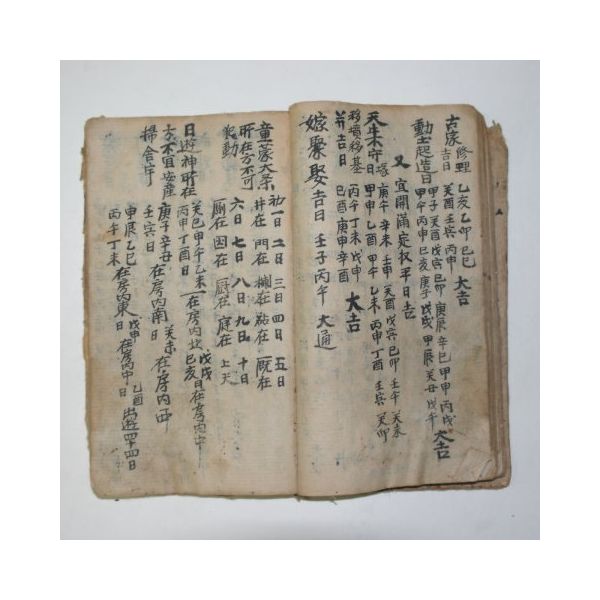 古冢修理吉日 乙亥乙卯己巳 大吉
癸酉壬寅丙申
動土起造日 甲子癸酉戊寅己卯庚辰辛巳甲申丙戌
甲午丙申己亥庚子戊戌甲辰癸丑戊午 大吉
又 宜開滿定執平日吉
天牛不守塚日 庚午辛未壬申癸酉戊寅己卯壬午癸未
甲申乙酉甲午乙未丙申丁酉壬寅癸卯
移墳移基 丙午丁未戊申 大吉
并吉日 己酉庚申辛酉
嫁娶吉日 壬子丙午 大通
童蒙大系 初一日二日三日四日五日
所在方不可 井在門在 在 在厩在
動 六日七日八日九日十日
厠在 在厨在庭在上天
日遊神所在 癸巳甲午乙未 在房內北 戊戌
丙申丁酉日 己亥日在房內中
方不宜安産 庚子辛丑 在房內南 癸未在房內西
掃舍宇 壬寅日
甲辰乙巳 在房內東 戊申 在房內中 乙酉 出遊四十四日
丙午丁未日 日